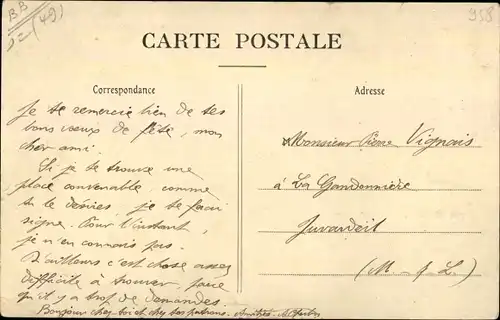 BB
(49)
938
CARTE POSTALE
Correspondance
Je te remercie bien de tes
bons vœux de fête, mon
cher ami.
Si je te trouve une
place convenable, comme
tu le désires, je te ferai
signe. Pour l'instant,
je n'en connais pas.
D'ailleurs c'est chose assez
difficile à trouver, parce
qu'il y a trop de demandes.
Bonjour chez toi et chez tes patrons. Amitiés.
Adresse
Monsieur Pierre Vignais
à La Gandonnière
Juvardeil
(M.-&-L.)